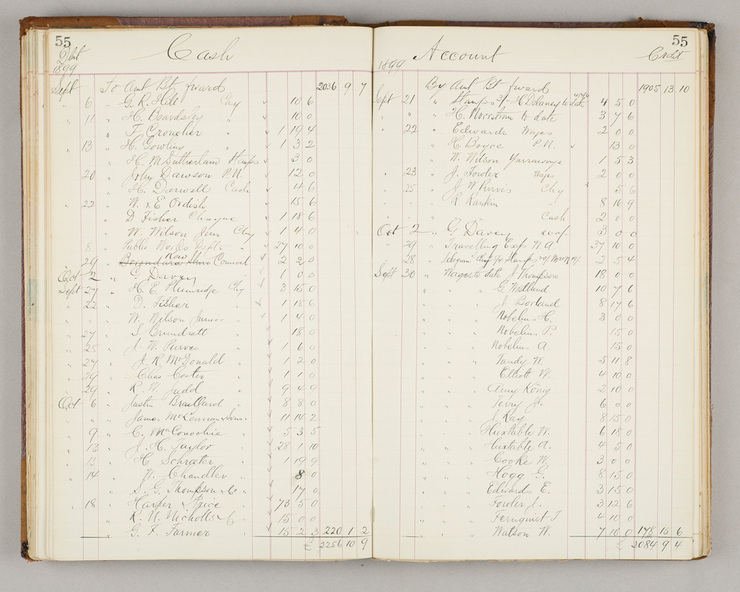 55
Cash
1899
Sept To Amt Bt forward 2036 9 7
6 G. R. Hill Chy 10 6
11 H. Beardsley 10 0
T. Croucher 1 19 4
13 H. Gowling 1 3 2
H. M. Sutherland Stamps 3 0
20 John Dawson P.N. 12 0
H. Darvell Cash 14 6
22 W. & E. Ordish 15 6
D. Fisher Cheque 1 18 6
W. Wilson Junr Chy 1 4 0
8 Public Works Dept 27 10 0
29 Council 2 2 3
Oct 2 G. Davey 1 0 0
Sept 27 H. E. Plumridge Chy 2 15 0
22 D. Fisher 1 18 6
W. Wilson Junior 1 4 0
27 S. Brundrett 18 0
25 J. W. Purves 1 6 0
27 J. R. McDonald 1 2 0
Chas Coster 1 1 0
29 R. W. Judd 9 4 0
Oct 6 Justin Brailland 8 8 0
James McConnan 11 14 2
9 C. McConochie 5 3 5
13 J. H. Taylor 28 1 10
13 H. Schroeter 1 19 9
14 W. Chandler 8 0
Thompson & Co 17 0
18 Harper & Price 73 5 0
R. W. Nicholls & Co 15 0 0
G. F. Farmer 15 2 3 220 1 2
£ 2256 10 9
55
1899
Account
Sept 21 By Amt Bt forward 1905 13 10
Stamps H. Delaney wages to date 4 5 0
H. Morrison to date 3 7 6
22 Edwards Wages 2 0 0
H. Boyce P.N. 13 0
W. Wilson 1 5 3
23 J. Fowler Wages 2 0 0
25 J. W. Purvis Chy 5 6
R. Rankin 8 10 9
Cash 2 0 0
Oct 2 G. Davey 3 0 0
29 Travelling Exp W. A. 37 10 0
28 Stamps 2 5 4
Sept 30 Wages to date J. Thompson 18 0 0
G. Maitland 10 7 6
J. Borland 8 17 6
Nobelius H. 3 0 0
Nobelius P. 15 0
Nobelius A. 15 0
Tandy W. 5 11 8
Elliott W. 4 10 0
Amy König 2 10 0
Terry J. 6 0 0
J. Kay 8 15 0
Huxtable W. 6 18 0
Huxtable A. 4 5 0
Cooke W. 3 0 0
Hogg G. 8 15 0
Edwards E. 3 15 0
Fowler J. 3 12 6
Fernquist T. 4 10 0
Watson W. 7 10 0 178 15 6
£ 2084 9 4